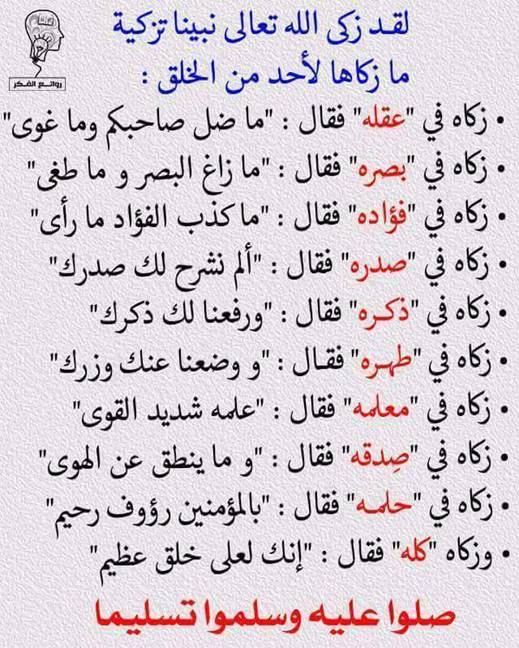 لقد زكى الله تعالى نبينا تزكية
ما زكاها لأحد من الخلق :
روائع الفكر
• زكاه في "عقله" فقال : "ما ضل صاحبكم وما غوى"
• زكاه في "بصره" فقال : "ما زاغ البصر و ما طغى"
• زكاه في "فؤاده" فقال : "ما كذب الفؤاد ما رأى"
• زكاه في "صدره" فقال : "ألم نشرح لك صدرك"
• زكاه في "ذكره" فقال : "ورفعنا لك ذكرك"
• زكاه في "طهره" فقال : "و وضعنا عنك وزرك"
• زكاه في "معلمه" فقال : "علمه شديد القوى"
• زكاه في "صِدقه" فقال : "و ما ينطق عن الهوى"
• زكاه في "حلمه" فقال : "بالمؤمنين رؤوف رحيم"
• وزكاه "كله" فقال : "إنك لعلى خلق عظيم"
صلوا عليه وسلموا تسليما